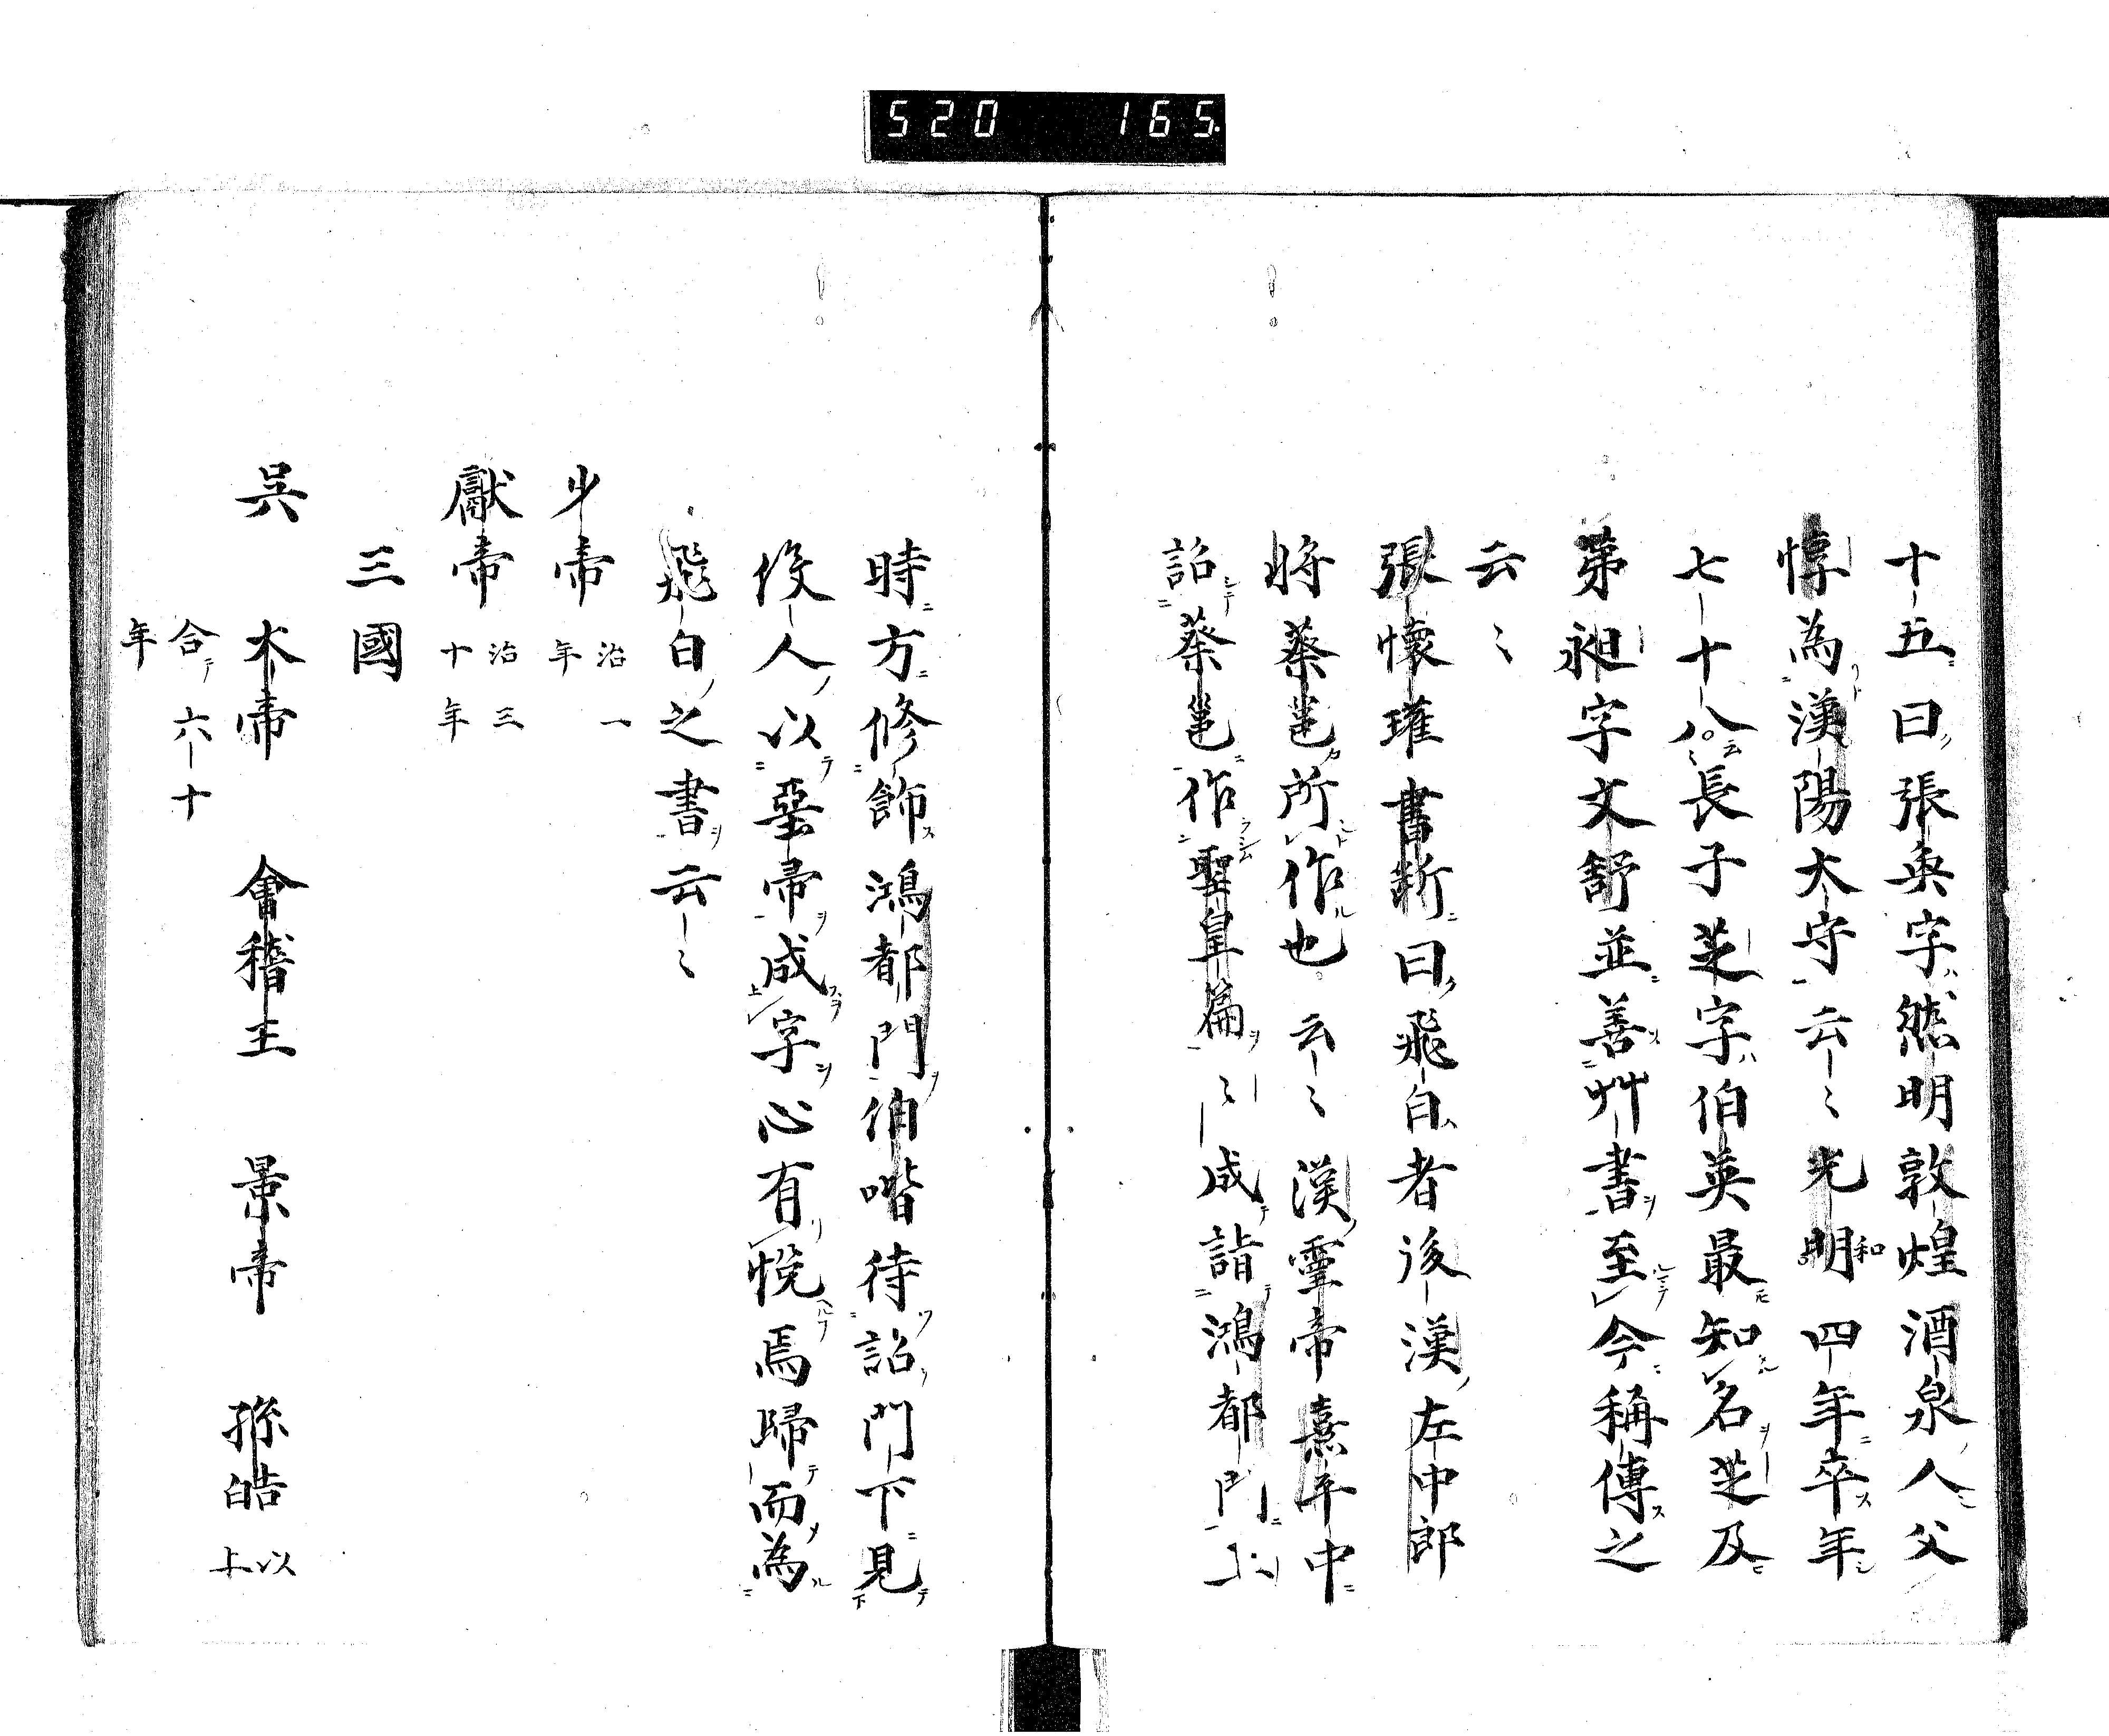 520 165
十五曰張奐字然明敦煌酒泉人父
惇為漢陽太守云〻光明和四年卒年
七十八云〻長子芝字伯英最知名芝及
第昶字文舒並善艸書至今稱傳之
云〻
張懷瓘書断曰飛白者後漢左中郎
將蔡邕所作也云〻漢靈帝熹平中
詔蔡邕作聖皇篇〻成詣鴻都門上
時方修飾鴻都門伯喈待詔門下見
役人以堊帚成字心有悅焉歸而為
飛白之書云〻
少帝 治一年
獻帝 治三十年
三國
吳 大帝 會稽王 景帝 孫皓 以上
合六十年